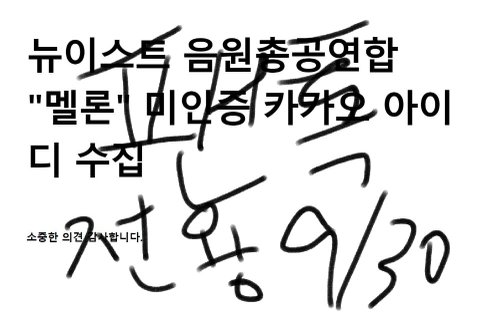 뉴이스트 음원총공연합
"멜론" 미인증 카카오 아이
디 수집
소중한 의견 감사합니다.
표내톡
전용 9/30